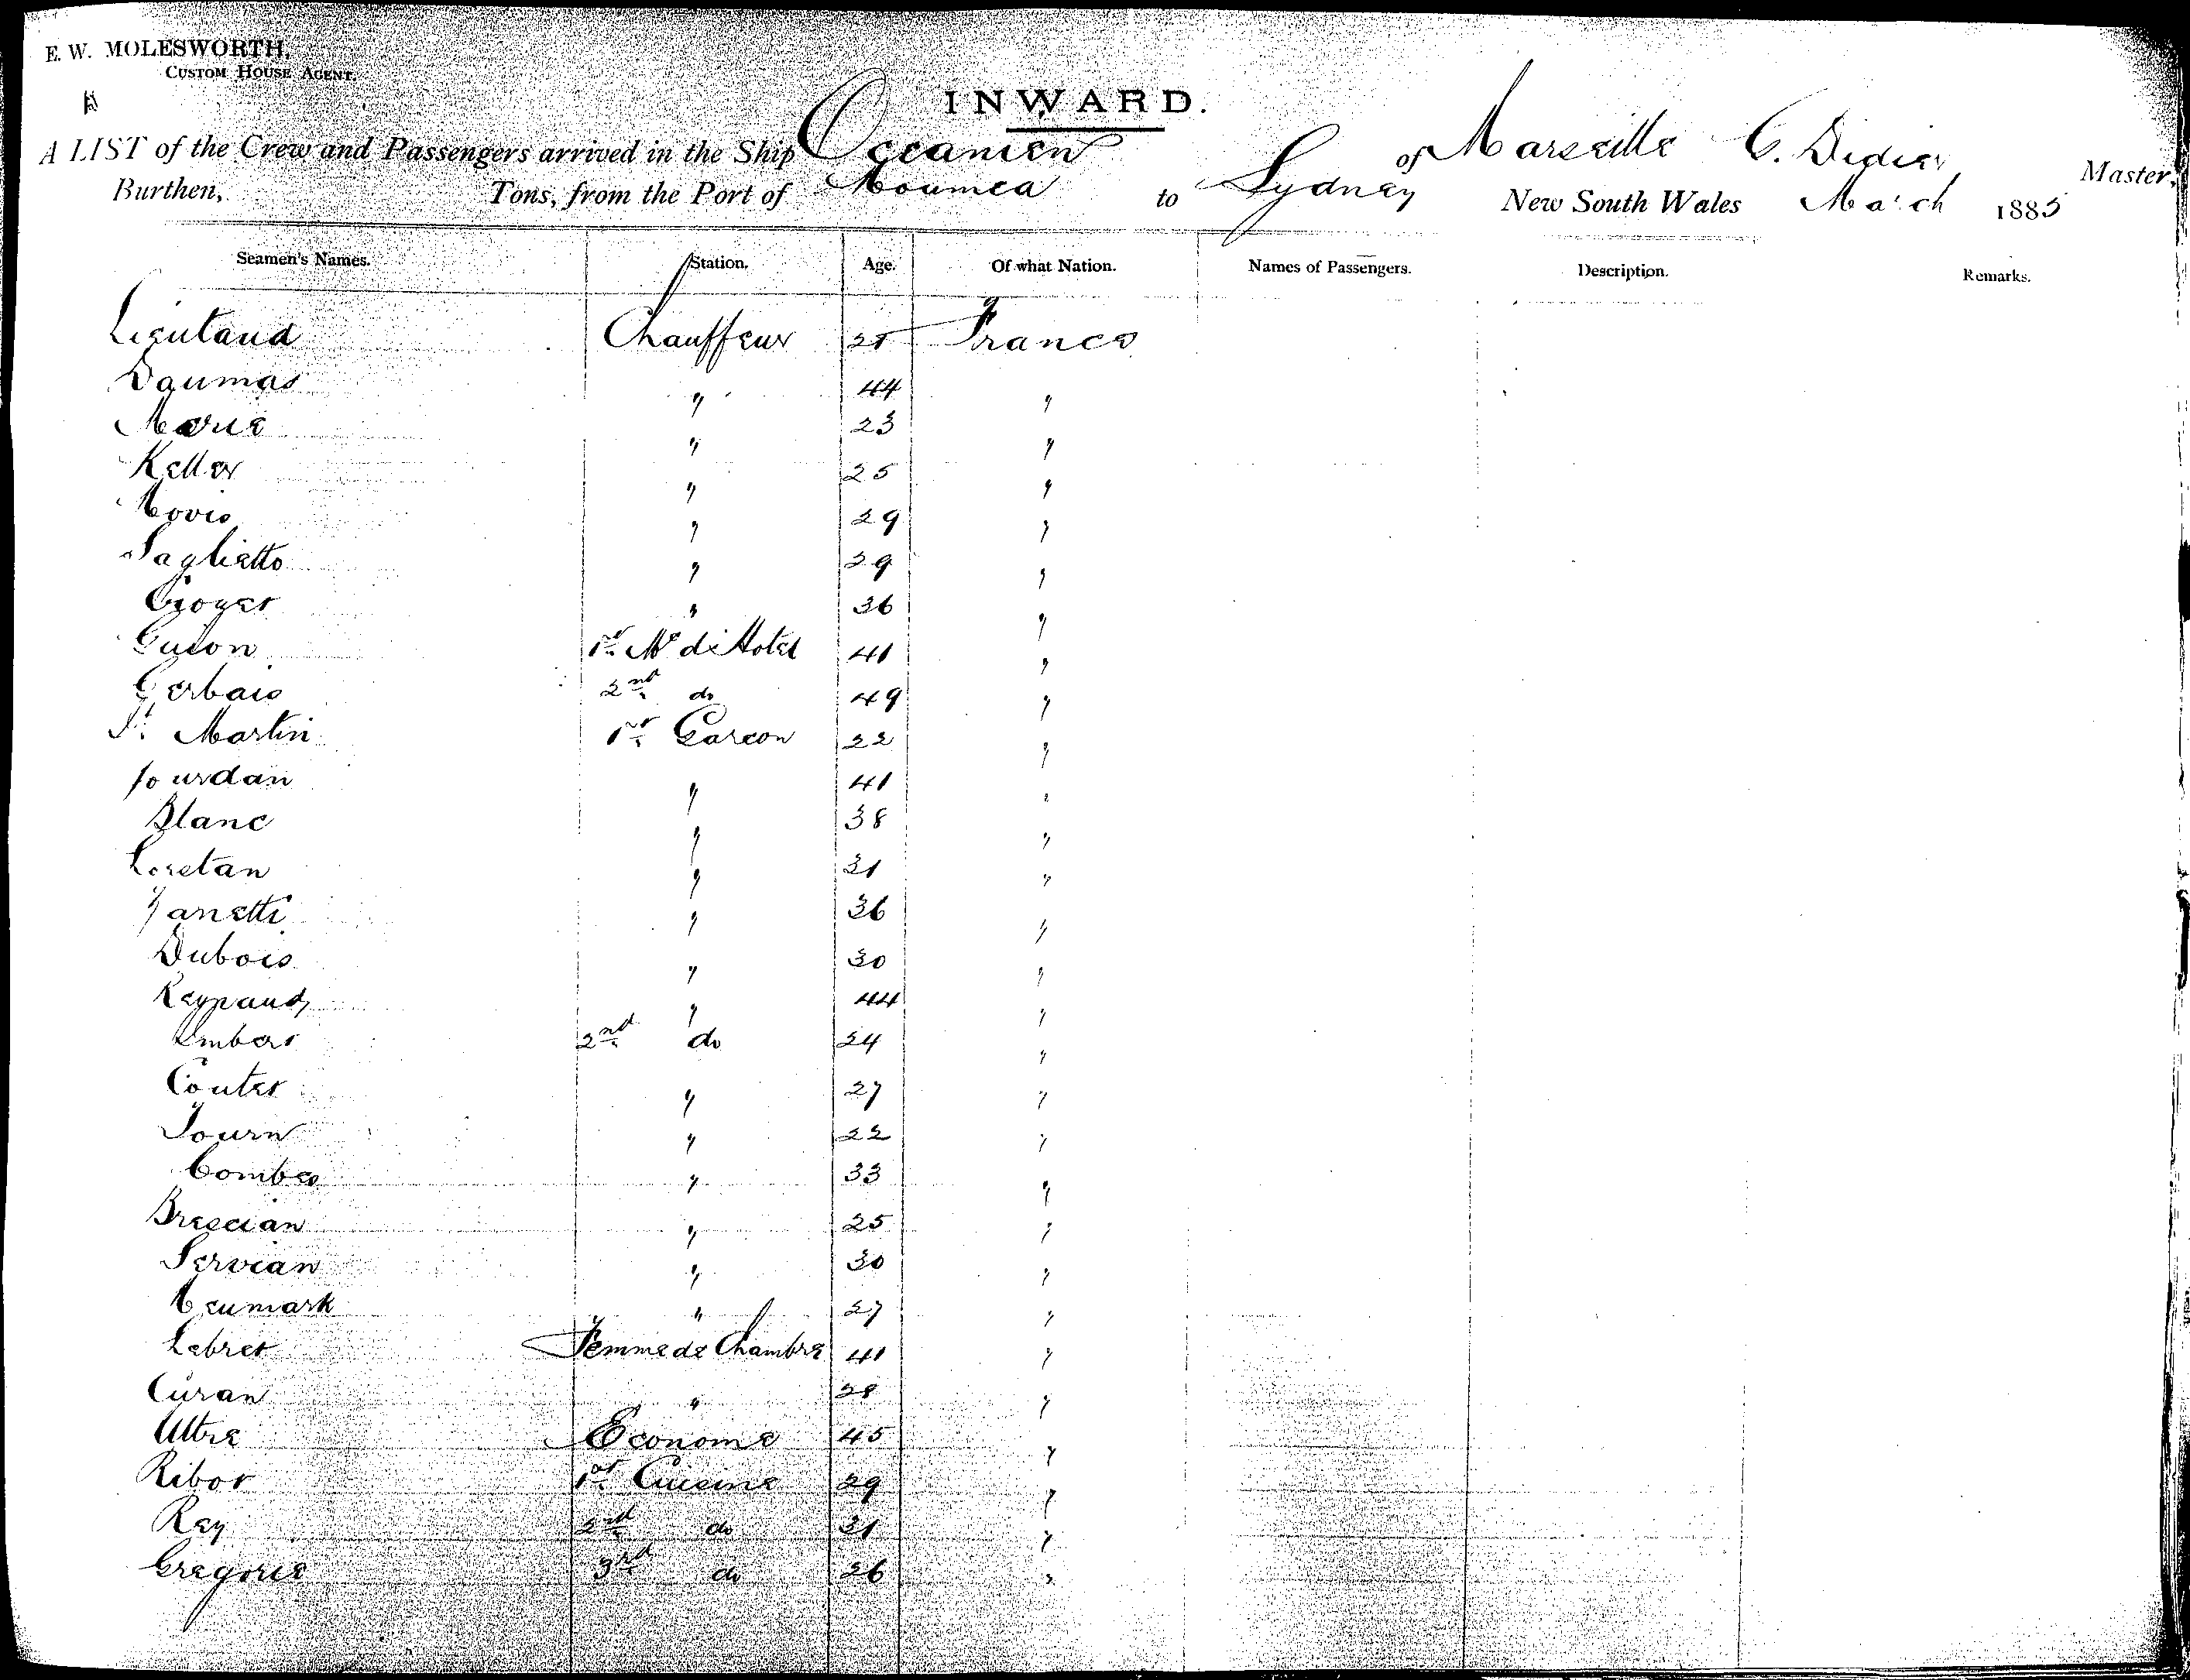 E. W. MOLESWORTH,
CUSTOM HOUSE AGENT.
INWARD.
A LIST of the Crew and Passengers arrived in the Ship Oceanien of Marseille C. Didier Master,
Burthen, Tons, from the Port of Noumea to Sydney New South Wales March 1885
Seamen's Names. Station. Age. Of what Nation. Names of Passengers. Description. Remarks.
Lieutaud Chauffeur 28 France
Daumas " 44 "
Marie " 23 "
Keller " 25 "
Novis " 29 "
Taglietto " 29 "
" 36 "
Guion 1st Me d'Hotel 41 "
Gerbais 2nd do 49 "
St. Martin 1st Garcon 22 "
Jourdan " 41 "
Blanc " 38 "
Loretan " 31 "
Zanetti " 36 "
Dubois " 30 "
Reynaud " 44 "
Imbert 2nd do 24 "
Coutet " 27 "
Tourn " 22 "
Combes " 33 "
Brescian " 25 "
Servian " 30 "
Neumark " 27 "
Lebret Femme de Chambre 41 "
Curan " 28 "
Econome 45 "
Ribot 1st Cuisine 29 "
Rey 2nd do 31 "
Gregorie 3rd do 26 "